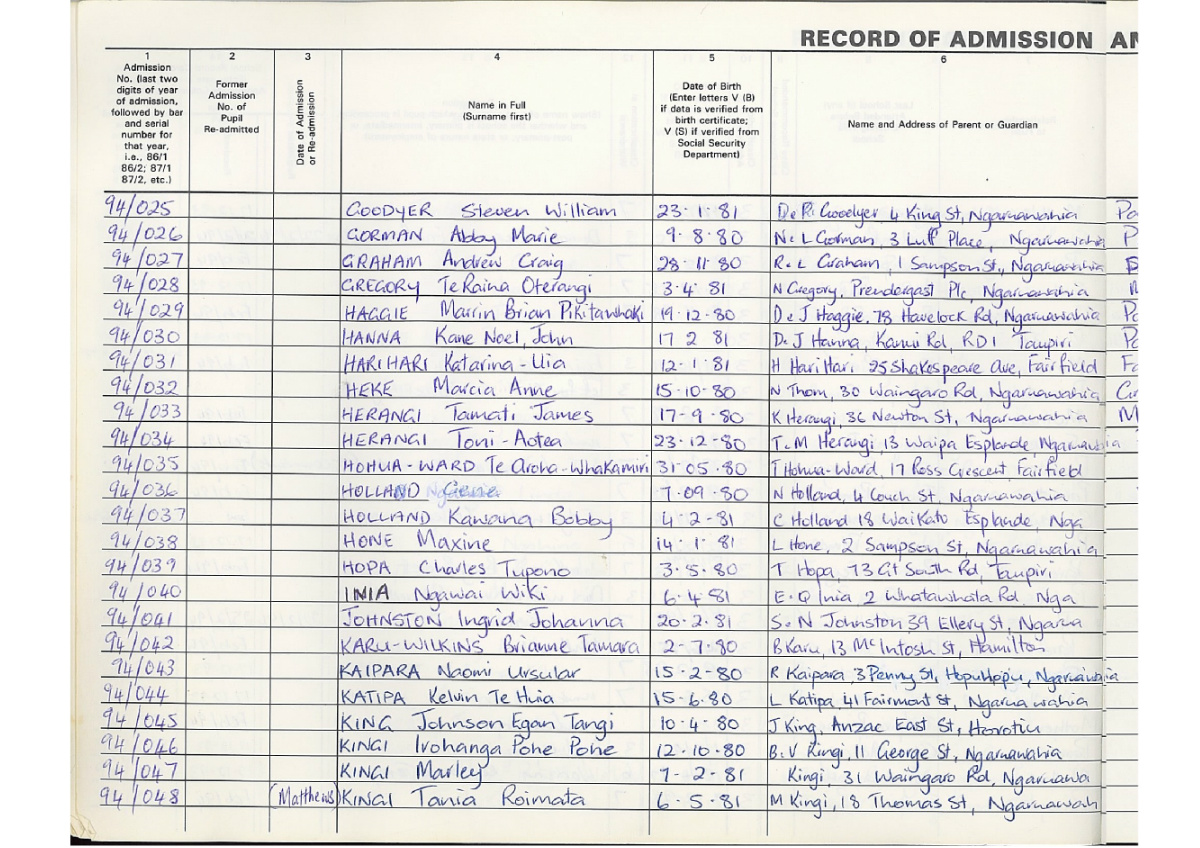 RECORD OF ADMISSION AN
1 2 3 4 5 6
Admission No. (last two digits of year of admission, followed by bar and serial number for that year, i.e., 86/1 86/2; 87/1 87/2, etc.)
Former Admission No. of Pupil Re-admitted
Date of Admission or Re-admission
Name in Full (Surname first)
Date of Birth (Enter letters V (B) if data is verified from birth certificate; V (S) if verified from Social Security Department)
Name and Address of Parent or Guardian
94/025 GOODYER Steven William 23·1·81 D & R Goodyer 4 King St, Ngaruawahia Pa
94/026 GORMAN Abby Marie 9·8·80 N & L Gorman, 3 Luff Place, Ngaruawahia P
94/027 GRAHAM Andrew Craig 28·11·80 R & L Graham, 1 Sampson St., Ngaruawahia
94/028 GREGORY Te Raina Oterangi 3·4·81 N Gregory, Prendergast Plc, Ngaruawahia
94/029 HAGGIE Marrin Brian Pikitawhaki 19·12·80 D & J Haggie, 78 Havelock Rd, Ngaruawahia Pa
94/030 HANNA Kane Noel, John 17 2 81 D & J Hanna, Kanui Rd, RD1 Taupiri Pa
94/031 HARIHARI Katarina-Uia 12·1·81 H HariHari 25 Shakespeare Ave, Fairfield Fa
94/032 HEKE Marcia Anne 15·10·80 N Thom, 30 Waingaro Rd, Ngaruawahia
94/033 HERANGI Tamati James 17-9-80 K Herangi, 36 Newton St, Ngaruawahia M
94/034 HERANGI Toni-Aotea 23·12-80 T & M Herangi, 13 Waipa Esplande Ngaruawahia
94/035 HOHUA-WARD Te Aroha-Whakamiri 31·05·80 T Hohua-Ward, 17 Ross Crescent Fairfield
94/036 HOLLAND Gene 7·09·80 N Holland, 4 Couch St, Ngaruawahia
94/037 HOLLAND Kawana Bobby 4·2-81 C Holland 18 Waikato Esplande, Nga
94/038 HONE Maxine 14·1·81 L Hone, 2 Sampson St, Ngaruawahia
94/039 HOPA Charles Tupono 3·5·80 T Hopa, 73 Gt South Rd, Taupiri
94/040 INIA Ngawai Wiki 6·4·81 E·Q Inia 2 Whatawhata Rd. Nga
94/041 JOHNSTON Ingrid Johanna 20·2·81 S & N Johnston 39 Ellery St, Ngarua
94/042 KARU-WILKINS Brianne Tamara 2-7·80 B Karu, 13 McIntosh St, Hamilton
94/043 KAIPARA Naomi Ursular 15-2-80 R Kaipara, 3 Penny St, HopuHopu, Ngaruawahia
94/044 KATIPA Kelvin Te Huia 15·6·80 L Katipa, 41 Fairmont St, Ngaruawahia
94/045 KING Johnson Egan Tangi 10·4·80 J King, Anzac East St, Horotiu
94/046 KINGI Irohanga Pohe Pohe 12·10·80 B & V Kingi, 11 George St, Ngaruawahia
94/047 KINGI Marley 7-2-81 Kingi, 31 Waingaro Rd, Ngaruawa
94/048 (Matthews) KINGI Tania Roimata 6·5·81 M Kingi, 18 Thomas St, Ngaruawah